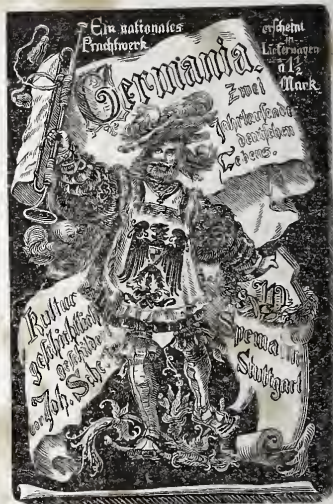 Ein nationales
Prachtwerk
erscheint
in
Lieferungen
à 1½
Mark
Germania.
Zwei
Jahrtausende
deutschen
Lebens.
Kultur
geschichtlich
von Joh.
W.
Stuttgart